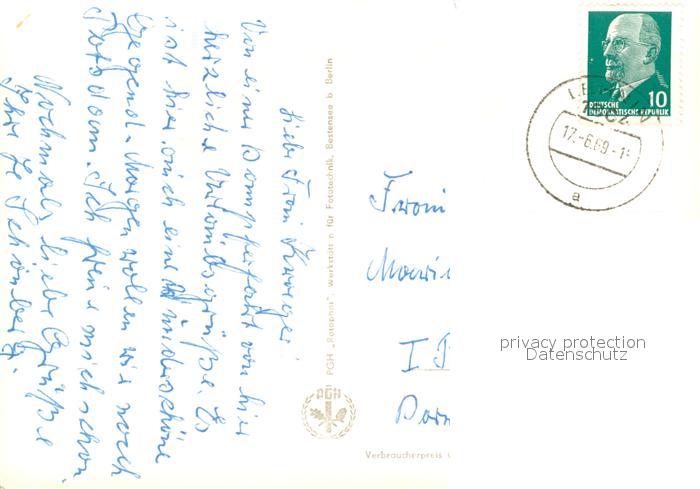 Liebe Frau Krueger
Von einer Dampferfahrt von hier
herzliche Urlaubsgrüße. Es
ist hier auch eine wunderschöne
Gegend. Morgen wollen wir nach
Potsdam. Ich freue mich schon.
Nochmals liebe Grüße
Ihre
PGH „Rotophot", Werkstätten für Fototechnik, Bestensee b. Berlin
PGH
Verbraucherpreis
Frau
I
DEUTSCHE
DEMOKRATISCHE REPUBLIK
10
17.-6.69.-1
a
privacy protection
Datenschutz